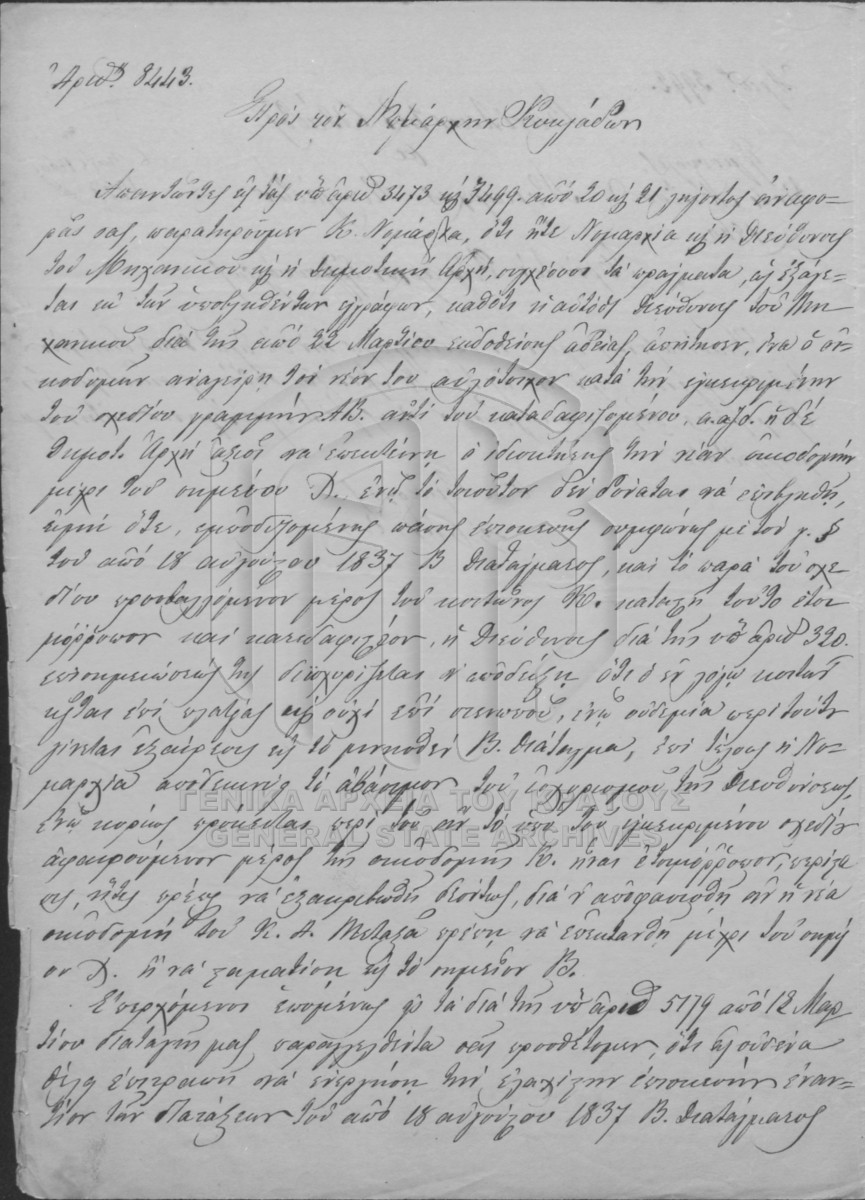 Ἀριθ. 8443.
Πρὸς τὸν Νομάρχην Κυκλάδων
Ἀπαντῶντες εἰς τὰς ὑπ' ἀριθ. 3473 καὶ 3499. ἀπὸ 20 καὶ 21 λήγοντος ἀναφο-
ράς σας, παρατηροῦμεν Κ. Νομάρχα, ὅτι ἥτε Νομαρχία καὶ ἡ Διεύθυνσις
τοῦ Μηχανικοῦ καὶ ἡ Δημοτικὴ Ἀρχή, συγχέουσι τὰ πράγματα, ὡς ἐξάγε-
ται ἐκ τῶν ὑποβληθέντων ἐγγράφων, καθότι ἡ Διεύθυνσις τοῦ Μη-
χανικοῦ διὰ τῆς ἀπὸ 22 Μαρτίου ἐκδοθείσης ἀδείας, ἀπῄτησεν, ἵνα ὁ οἰ-
κοδομῶν ἀναγείρῃ τὸν νέον του αὐλότοιχον κατὰ τὴν ἐγκεκριμένην
τοῦ σχεδίου γραμμὴν ΑΒ. ἀντὶ τοῦ κατεδαφιζομένου, ἡ δὲ
Δημοτ. Ἀρχὴ ἀξιοῖ νὰ ἐπεκτείνῃ ὁ ἰδιοκτήτης τὴν νέαν οἰκοδομὴν
μέχρι τοῦ σημείου Δ. ἐνῷ τὸ τοιοῦτον δὲν δύναται νὰ ἐπιβληθῇ,
εἰμὴ ὅτε, ἐμποδιζομένης πάσης ἐπισκευῆς συμφώνως μὲ τὸν γ. §
τοῦ ἀπὸ 18 αὐγούστου 1837 Β Διατάγματος, καὶ τὸ παρὰ τοῦ σχε-
δίου προσβαλλόμενον μέρος τοῦ κοιτῶνος Κ. κατασταθῇ τοῦτο ἑτοι
μόρροπον καὶ κατεδαφιστέον, ἡ Διεύθυνσις διὰ τῆς ὑπ' ἀριθ 320.
ἐπισημειώσεώς της διϊσχυρίζεται ν' ἀποδείξῃ ὅτι ὁ ἐν λόγῳ κοιτὼν
κεῖται ἐπὶ πλατείας καὶ οὐχὶ ἐπὶ στενωποῦ, ἐνῷ οὐδεμία περὶ τούτου
γίνεται ἐξαίρεσις εἰς τὸ μνησθὲν Β. Διάταγμα, ἐπὶ τέλους ἡ Νο-
μαρχία ἀποδεικνύει τὸ ἀβάσιμον τοῦ ἰσχυρισμοῦ τῆς Διευθύνσεως,
ἐνῷ κυρίως πρόκειται περὶ τοῦ ἂν τὸ ὑπὸ τοῦ ἐγκεκριμένου σχεδίου
ἀφαιρούμενον μέρος τῆς οἰκοδομῆς Κ. ἦναι ἑτοιμόρροπον,
ἥτις πρέπει νὰ ἐξακριβωθῇ δεόντως, διὰ ν' ἀποφασισθῇ ἂν ἡ νέα
οἰκοδομὴ τοῦ Κ. Α. Μεταξᾶ πρέπῃ νὰ ἐπεκτανθῇ μέχρι τοῦ σημεί
ου Δ. ἢ νὰ σταματήσῃ εἰς τὸ σημεῖον Β.
Ἐπερχόμενοι ἑπομένως εἰς τὰ διὰ τῆς ὑπ' ἀριθ 5179 ἀπὸ 12 Μαρ
τίου διαταγῆς μας παραγγελθέντα σας προσθέτομεν, ὅτι εἰς οὐδένα
θέλει ἐπιτραπῆ νὰ ἐνεργήσῃ τὴν ἐλαχίστην ἐπισκευὴν ἐναν-
τίον τῶν διατάξεων τοῦ ἀπὸ 18 αὐγούστου 1837 Β. Διατάγματος
ΓΕΝΙΚΑ ΑΡΧΕΙΑ ΤΟΥ ΚΡΑΤΟΥΣ
GENERAL STATE ARCHIVES